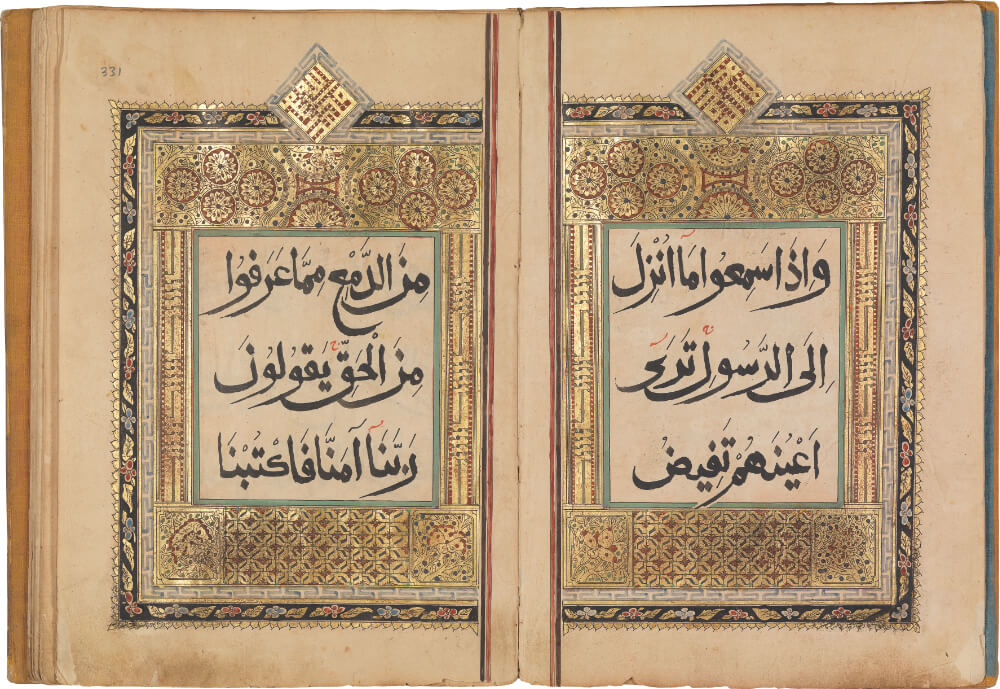 وَاِذَا سَمِعُوا مَا اُنْزِلَ
اِلَى الرَّسُولِ تَرَىٓ
اَعْيُنَهُمْ تَفِيضُ
مِنَ الدَّمْعِ مِمَّا عَرَفُوا
مِنَ الْحَقِّ يَقُولُونَ
رَبَّنَآ اٰمَنَّا فَاكْتُبْنَا
331